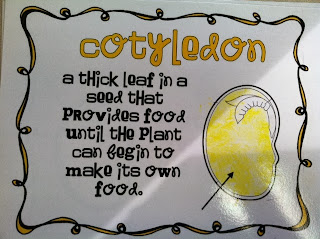 cotyledon
a thick leaf in a
seed that
provides food
until the plant
can begin to
make its own
food.